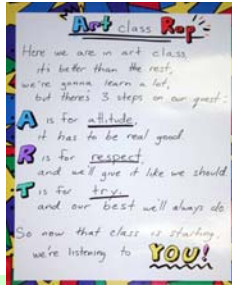 Art class Rap
Here we are in art class,
it's better than the rest,
we're gonna learn a lot,
but there's 3 steps on our quest:
A is for attitude,
it has to be real good.
R is for respect,
and we'll give it like we should.
T is for try,
and our best we'll always do.
So now that class is starting,
we're listening to YOU!